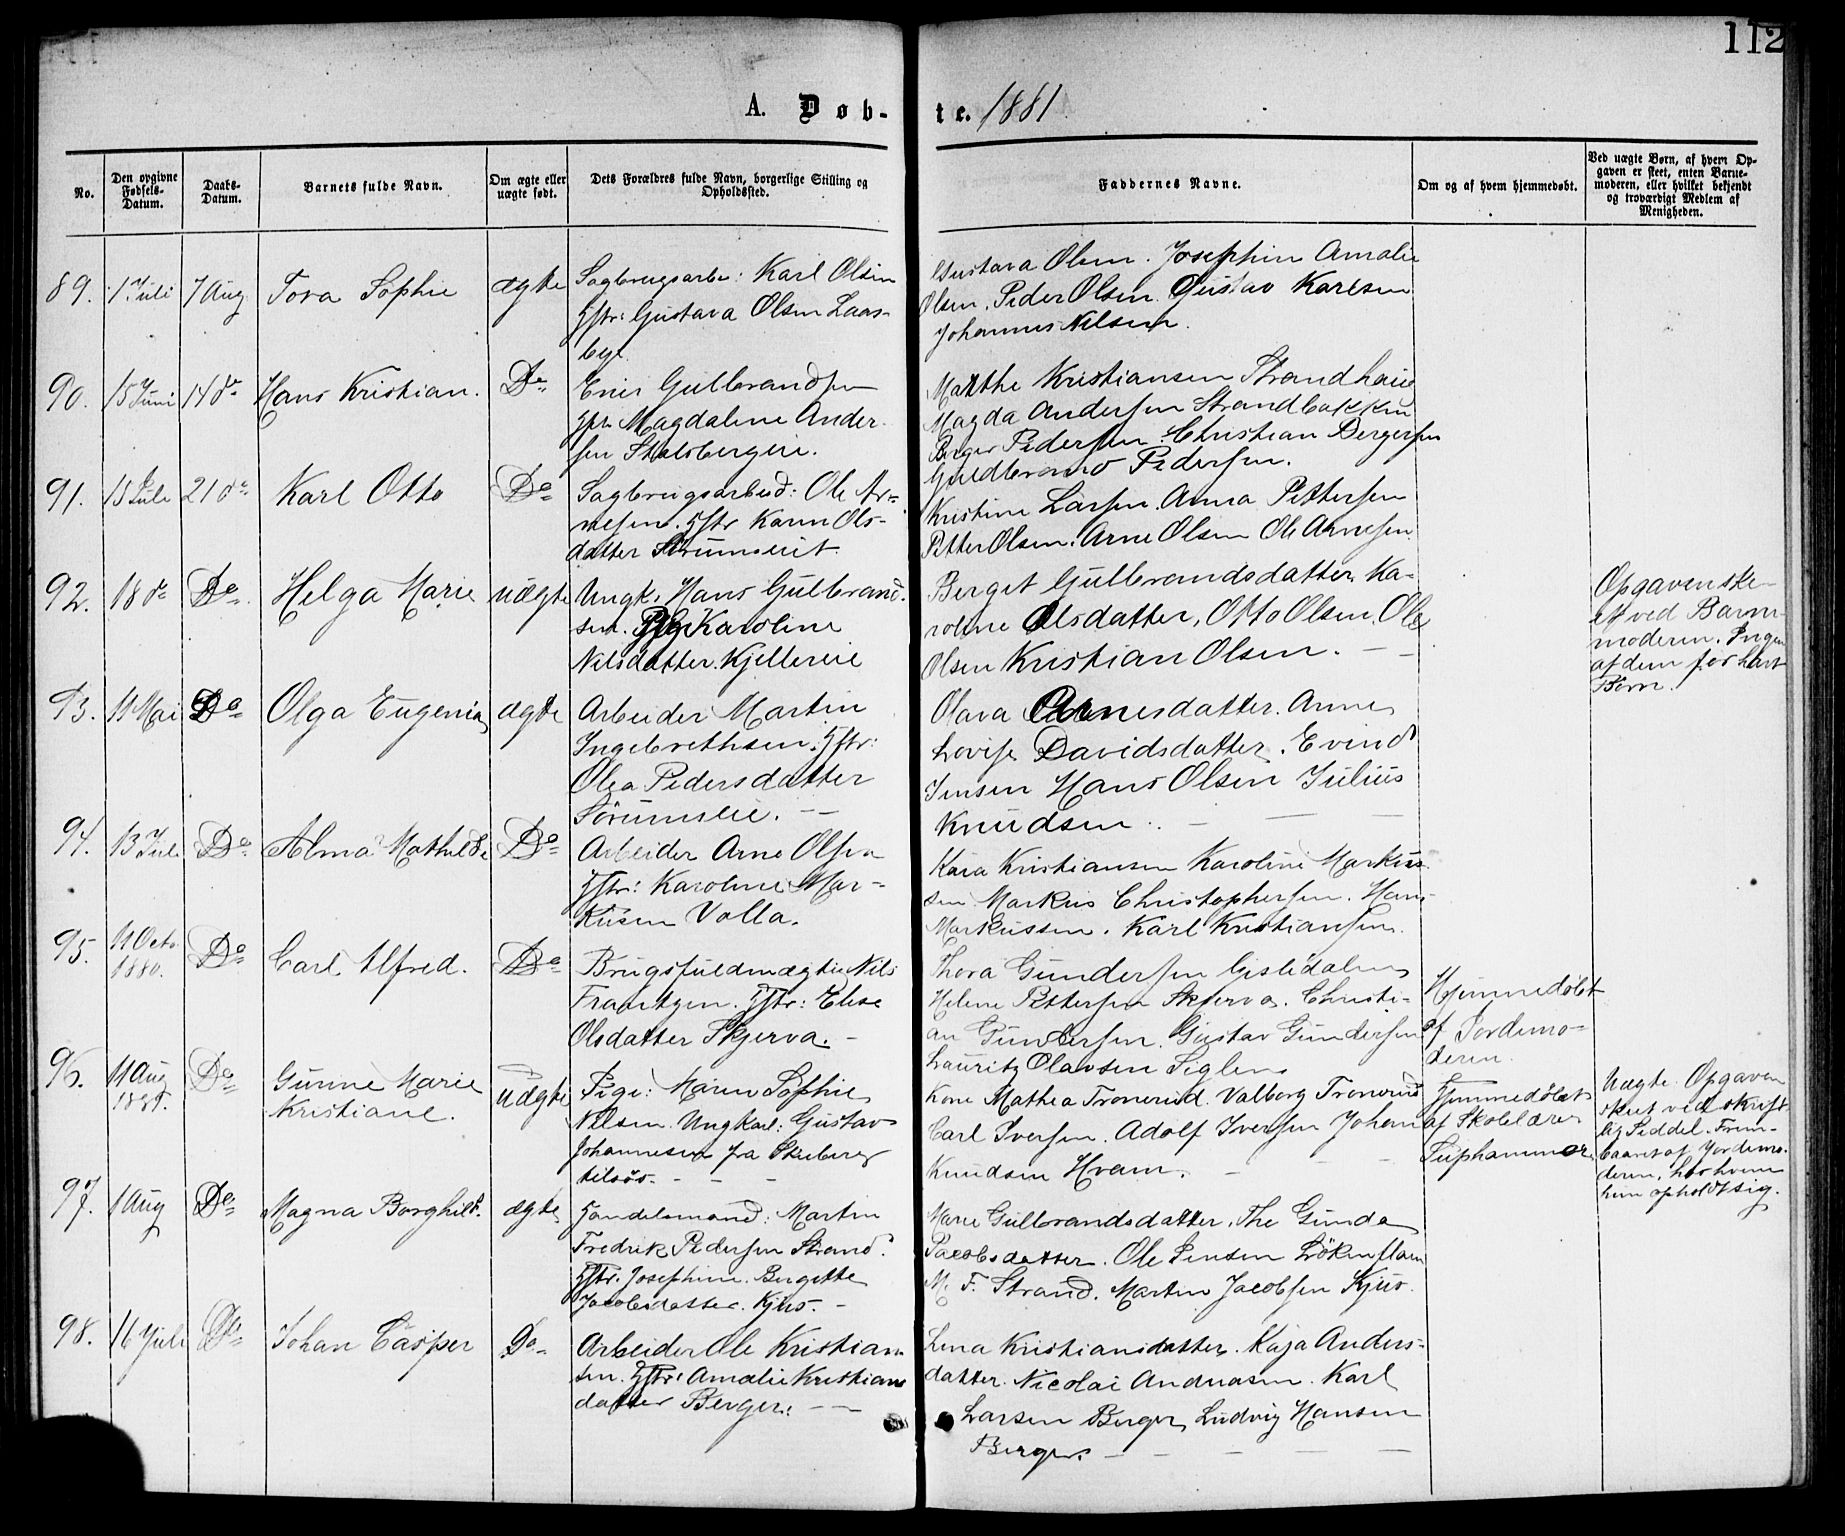 112
A. Døb-
te. 1881
No.
Den opgivne
Fødsels-
Datum.
Daabs-
Datum.
Barnets fulde Navn.
Om ægte eller
uægte født.
Dets Forældres fulde Navn, borgerlige Stilling og
Opholdssted.
Faddernes Navne.
Om og af hvem hjemmedøbt.
Ved uægte Børn, af hvem Op-
gaven er skeet, enten Barne-
moderen, eller hvilket bekjendt
og troværdigt Medlem af
Menigheden.
89. 1 Juli 7 Aug. Tova Sophie ægte
Sagbrugsarbe: Karl Olsen
Hstr: Gustava Olsen Laas-
bye
Gustava Olsen. Josephin Amalie
Olsen. Peder Olsen. Gustav Karlsen
Johannes Nilsen.
90. 15 Juni 14 do Hans Kristian. Do
Gulbrandsen
Magdaline Ander-
sen
Marthe Kristiansen
Magda Andersen Strandbakken
Berger Pedersen. Christian Bergersen
Guldbrand Pedersen.
91. 15 Juli 21 do Karl Otto Do
Sagbrugsarbeid: Ole Ar-
nesen. Hstr Karen Ols-
datter
Kristine Larsen. Anna Pettersen
Petter Olsen. Arne Olsen Ole Arnesen
92. 18 do Do Helga Marie uægte
Ungk. Hans Gulbrand-
sen. Pige Karoline
Nilsdatter. Kjellereie
Berget Gulbrandsdatter. Ka-
roline Olsdatter, Otto Olsen. Ole
Olsen Kristian Olsen. — —
Opgaven ske-
et ved Barne-
moderen. Ingen
af dem før havt
Børn.
93. 11 Mai Do Olga Eugenia ægte
Arbeider Martin
Ingebrethsen. Hstr:
Olea Pedersdatter
Sørumseie. —
Olava Arnesdatter. Anne
Lovise Davidsdatter. Evind
Jensen Hans Olsen Julius
Knudsen. — — —
94. 13 Juli Do Alma Mathilde Do
Arbeider Arne Olsen
Hstr: Karoline Mar-
kusen Volla.
Kaia Kristiansen Karoline Markus-
sen Markus Christophersen. Hans
Markussen. Karl Kristiansen.
95. 11 Octo
1880. Do Carl Alfred. Do
Brugsfuldmægtig Nils
Frantzen. Hstr: Elise
Olsdatter Skjerva. -
Thora Gundersen
Helene Pettersen Skjerva. Christi-
an Gundersen. Gustav Gundersen
Lauritz Olavsen Siglen
Hjemmedøbt
af Jordemo-
deren.
96. 11 Aug
1881. Do Gurine Marie
Kristiane. uægte
Pige: Maren Sophie
Nilsen. Ungkarl: Gustav
Johannesen fra Skeberg
tilsøs. - - -
Kone Mathea Tronerud. Valborg Tronerud
Carl Iversen. Adolf Iversen Johan
Knudsen Hvam. - - -
Hjemmedøbt
af Skolelærer
Uægte. Opgaven
skeet ved skrift-
lig Seddel. Frem-
baaret af Jordemo-
deren, hos hvem
hun opholdt sig.
97. 1 Aug Do Magna Borghild. ægte
Handelsmand: Martin
Fredrik Pedersen Strand.
Hstr. Josephine Birgitte
Jacobsdatter. Kjus. -
Marie Gulbrandsdatter. The Gunda
Jacobsdatter. Ole Jensen
M. F. Strand. Martin Jacobsen Kjus.
98. 16 Juli Do Johan Casper Do
Arbeider Ole Kristian-
sen. Hstr: Amalie Kristians
datter Berger: — —
Lena Kristiansdatter. Kaja Anders-
datter. Nicolai Andreasen. Karl
Larsen Berger, Ludvig Hansen
Berger. — — — — —